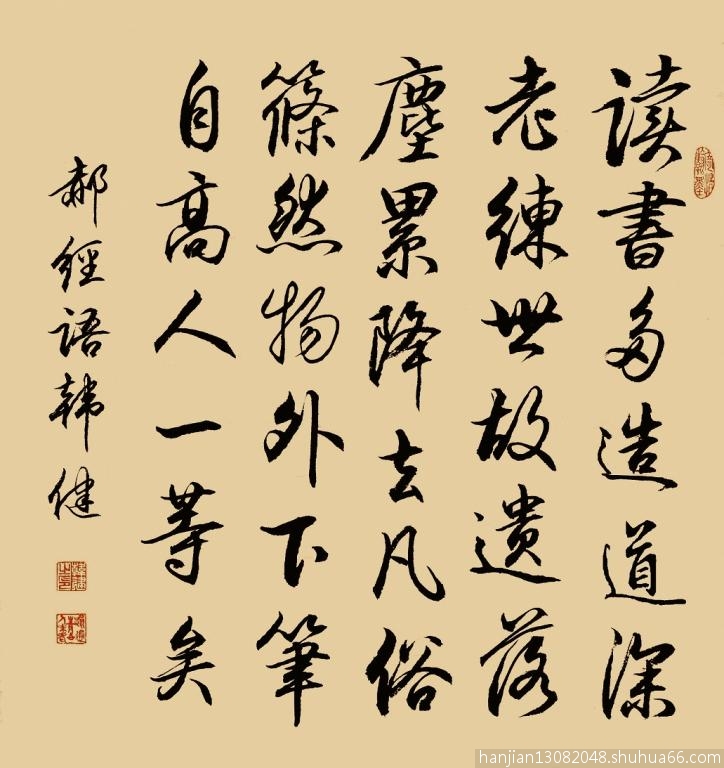 读書多造道深
老練世故遺落
塵累降去凡俗
篠然物外下筆
自高人一等矣
郝經语韓健
hanjian13082048.shuhua66.com